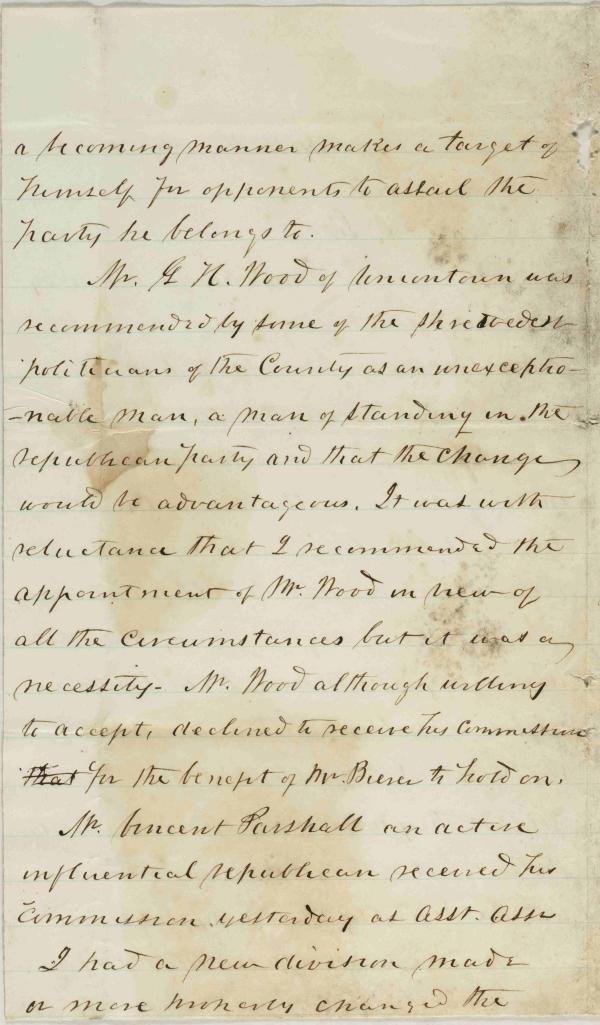 a becoming manner makes a target of
himself for opponents to assail the
party he belongs to.
Mr. G H. Wood of Uniontown was
recommended by some of the shrewedest
politicians of the County as an unexceptio-
-nable man, a man of standing in the
republican party and that the change
would be advantageous. It was with
reluctance that I recommended the
appointment of Mr. Wood in view of
all the circumstances but it was a
necessity - Mr. Wood although willing
to accept, declined to receive his commission
that for the benefit of Mr. Bierer to hold on.
Mr. Vincent Parshall an active
influential republican received his
commission yesterday as Asst. Assr
I had a new division made
or more properly changed the